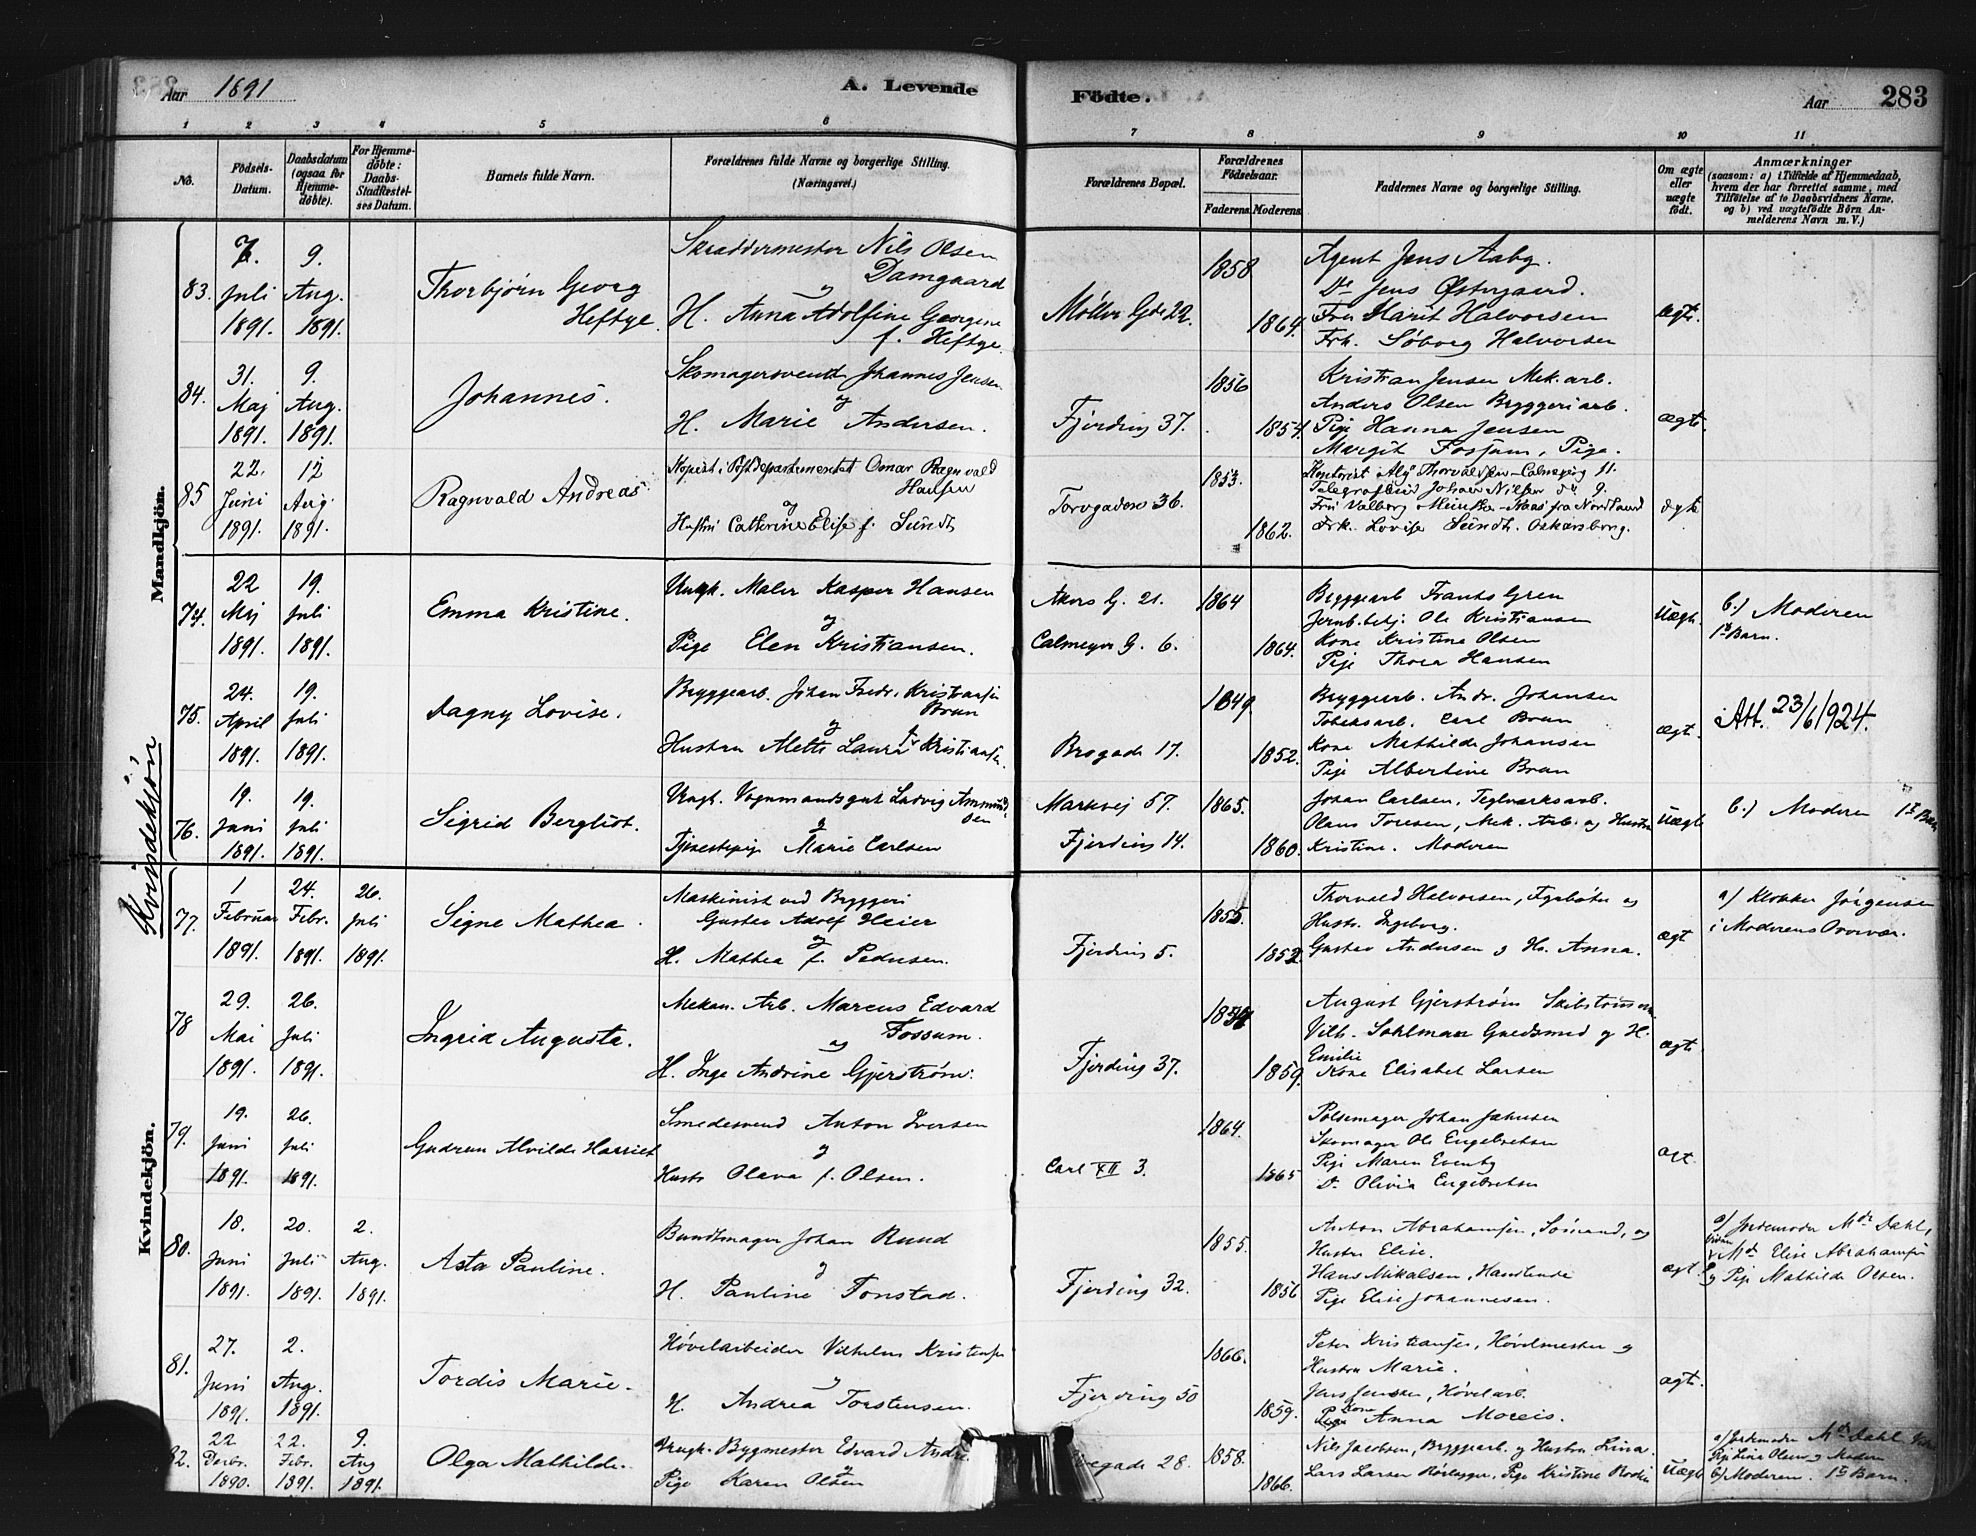 Aar 1891
A. Levende
Födte.
Aar
283
1 2 3 4 5 6 7 8 9 10 11
No.
Födsels-
Datum.
Daabsdatum
(ogsaa for
Hjemme-
döbte).
For Hjemme-
döbte:
Daabs-
Stadfæstel-
ses Datum.
Barnets fulde Navn.
Forældrenes fulde Navne og borgerlige Stilling.
(Næringsvei.)
Forældrenes Bopæl.
Forældrenes
Födselsaar.
Faderens
Moderens
Faddernes Navne og borgerlige Stilling.
Om ægte
eller
uægte
födt.
Anmærkninger
(saasom: a) i Tilfælde af Hjemmedaab,
hvem der har forrettet samme, med
Tilföielse af to Daabsvidners Navne,
og b) ved uægtefödte Börn An-
melderens Navn m. V.)
Mandkjön.
83.
7.
Juli
1891.
9.
Aug.
1891.
Thorbjørn Georg
Heftye
Skræddermester Nils Olsen
Damgaard
og
H. Anna Adolfine Georgine
f. Heftye.
Møller Gd. 22.
1858
1864.
Agent Jens Aaby.
Do Jens Østergaard.
Fru Marit Halvorsen
Frk. Søborg Halvorsen
ægte.
84.
31.
Maj
1891.
9.
Aug.
1891.
Johannes.
Skomagersvend Johannes Jensen
og
H. Marie Andersen.
Fjerding 37.
1856
1854.
Kristian Jensen Mek. arb.
Anders Olsen Bryggeriarb.
Pige Hanna Jensen
Margit Fossum, Pige.
ægte.
85
22.
Juni
1891.
12
Aug.
1891.
Ragnvald Andreas
Kopist i Postdepartementet Omar Ragnvald
Hansen
og
Hustru Catherine Elise f. Sundt
Torvgaden 36.
1853.
1862.
Kontorist Alf Thorvaldsen - Calmeyerg 11.
Telegrafbud Johan Nilsen
Frk. Lovise Sundt. Oskarsborg.
ægte
Kvindekjön
74.
22
Maj
1891.
19.
Juli
1891.
Emma Kristine.
Ungk. Maler Kasper Hansen
og
Pige Elen Kristiansen.
Akers G. 21.
Calmeyer G. 6.
1864
1864.
Bryggearb Frants Gren
Jernb. betj. Ole Kristiansen
Kone Kristine Olsen
Pige Thora Hansen
Uægte.
b.) Moderen
1st Barn.
75.
24.
April
1891.
19.
Juli
1891.
Dagny Lovise.
Bryggearb. Johan Fredr. Kristiansen
Brun
og
Hustru Mette Laura f. Kristiansen.
Brogade 17.
1849.
1852.
Bryggerarb. Andr. Johansen
Tobaksarb. Carl Brun
Kone Mathilde Johansen
Pige Albertine Brun
ægte.
Att. 23/6/924.
76.
19.
Juni
1891.
19.
Juli
1891.
Sigrid Bergliot.
Ungk. Vognmandsgut Ludvig Ammund-
sen
og
Tjenestepige Marie Carlsen
Markvej 57.
Fjerding 14.
1865.
1860.
Johan Carlsen, Teglværksarb.
Olaus Toresen, Mek. Arb. og Hustru
Kristine. Moderen
Uægte
b.) Moderen 1st Barn
77.
1
Februar
1891.
24.
Febr.
1891.
26.
Juli
1891.
Signe Mathea.
Maskinist ved Bryggeri
Gustav Adolf Heier
og
H. Mathea f. Pedersen.
Fjerding 5.
1855.
1852.
Thorvald Halvorsen, Fyrbøter og
Hustr. Ingeborg.
Gustav Andersen og H. Anna.
ægte
a) Klokker Jørgensen
i Moderens Overvær.
78
29.
Mai
1891.
26.
Juli
1891.
Ingrid Augusta.
Mekan. Arb. Marcus Edvard
Fossum.
og
H. Inge Andrine Gjerstrøm.
Fjerding 37.
1854
1859.
August Gjerstrøm Skibstømmerm.
Vilh. Sahlman Guldsmed og H.
Emilie
Kone Elisabet Larsen
ægte.
Kvindekjön.
79.
19.
Juni
1891.
26.
Juli
1891.
Gudrun Alvilde Harriet
Smedesvend Anton Iversen
og
Hustr. Olava f. Olsen.
Carl XII 3.
1864.
1865
Pølsemager Johan Jahnsen
Skomager Ole Engebretsen
Pige Maren Evenby
Do. Olivia Engebretsen
ægt.
80.
18.
Juni
1891.
20.
Juli
1891.
2.
Aug.
1891.
Asta Pauline.
Bundtmager Johan Ruud
og
H. Pauline Tonstad.
Fjerding 32.
1855.
1856
Anton Abrahamsen, Sømand, og
Hustru Elise.
Hans Mikalsen, Handlende
Pige Elise Johannesen.
ægt.
a) Jordemoder Md. Dahl,
Vidner
Md Elise Abrahamsen
og Pige Mathilde Olsen.
81.
27.
Juni
1891.
2.
Aug.
1891.
Tordis Marie.
Høvelarbeider Vilhelm Kristensen
og
H. Andrea Torstensen.
Fjerding 50
1866.
1859.
Peter Kristiansen, Høvelmester og
Hustru Marie.
Jens Jensen, Høvelarb.
Kone
Anna Moreis.
ægte.
82.
22
Decbr.
1890.
22.
Febr.
1891.
9.
Aug
1891.
Olga Mathilde.
Ungk. Bygmester Edvard Andr.
og
Pige Karen Olsen
28.
1858.
1866.
Nils Jacobsen, Bryggearb. og Hustru Lina.
Lars Larsen Rørlegger, Pige Kristine
Uægte
a) Jordemoder Md. Dahl
Pige Lina Olsen og Moderen
b) Moderen. 1st Barn.